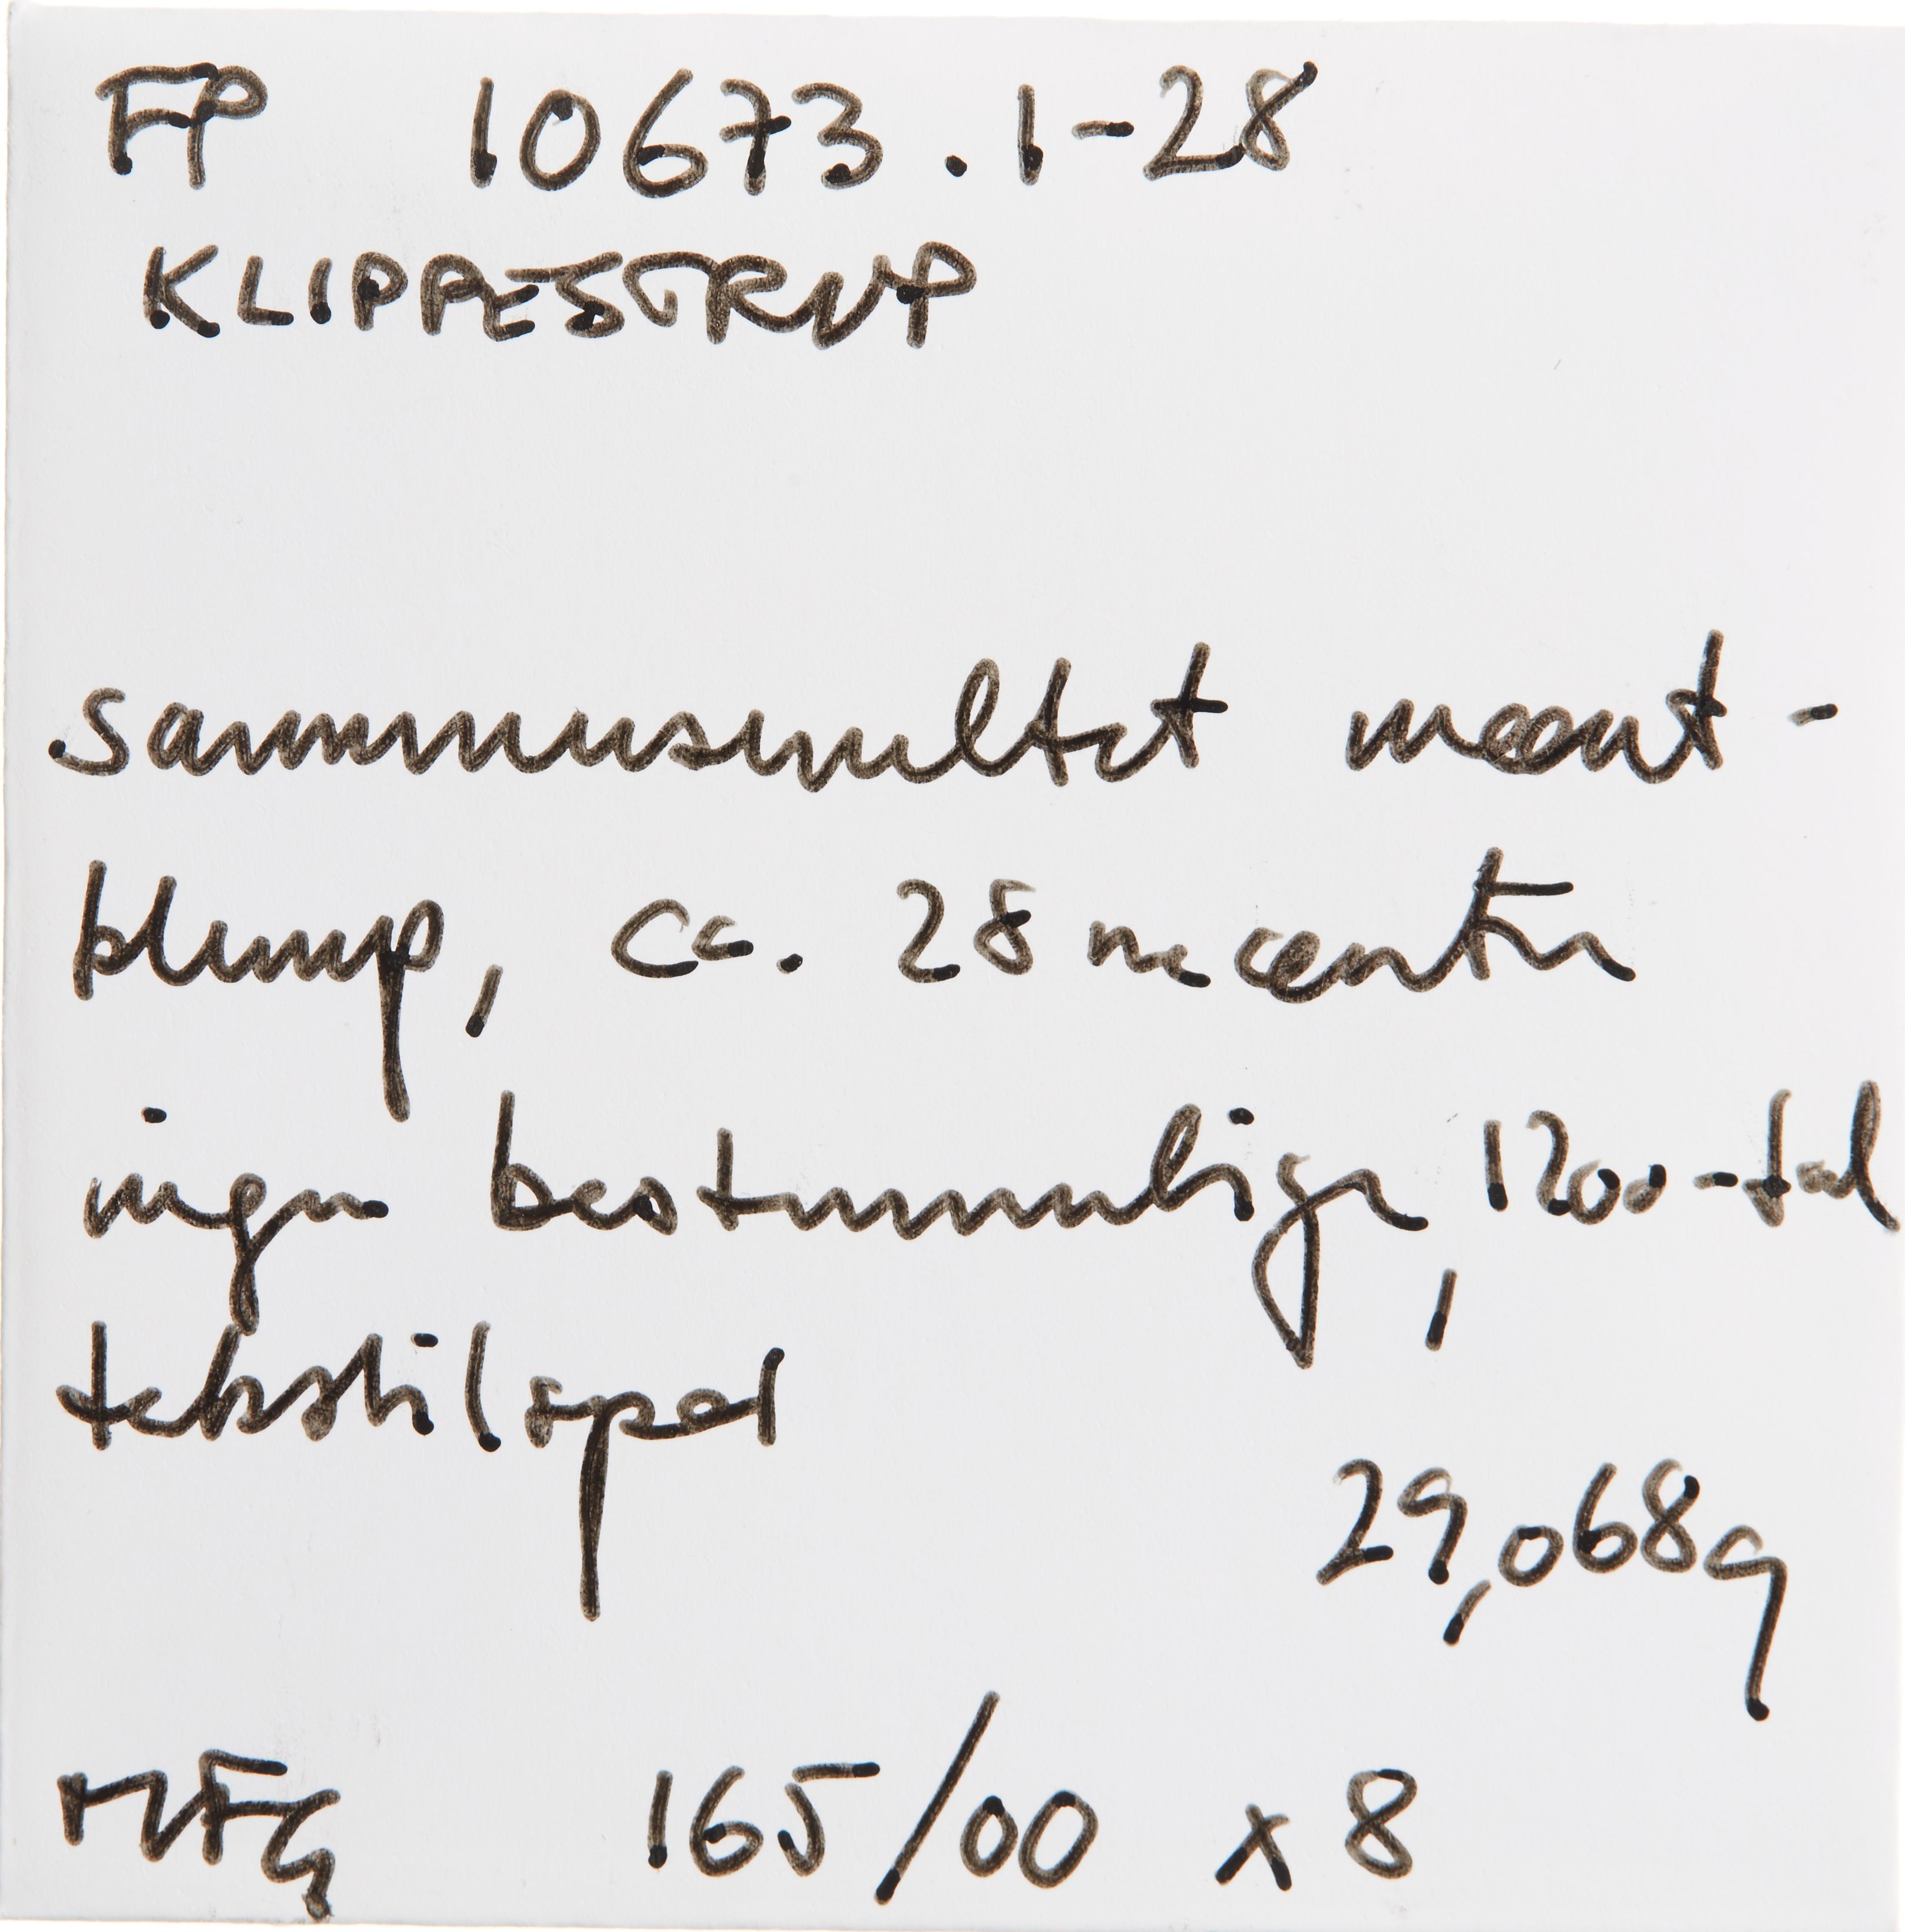 FP 10673.1-28
KLIPPESTRUP
sammensmeltet mønt-
klump, ca. 28 mønter
ingen bestemmelige, 1200-tal
tekstilspor
29,068g
MFG 165/00 x8